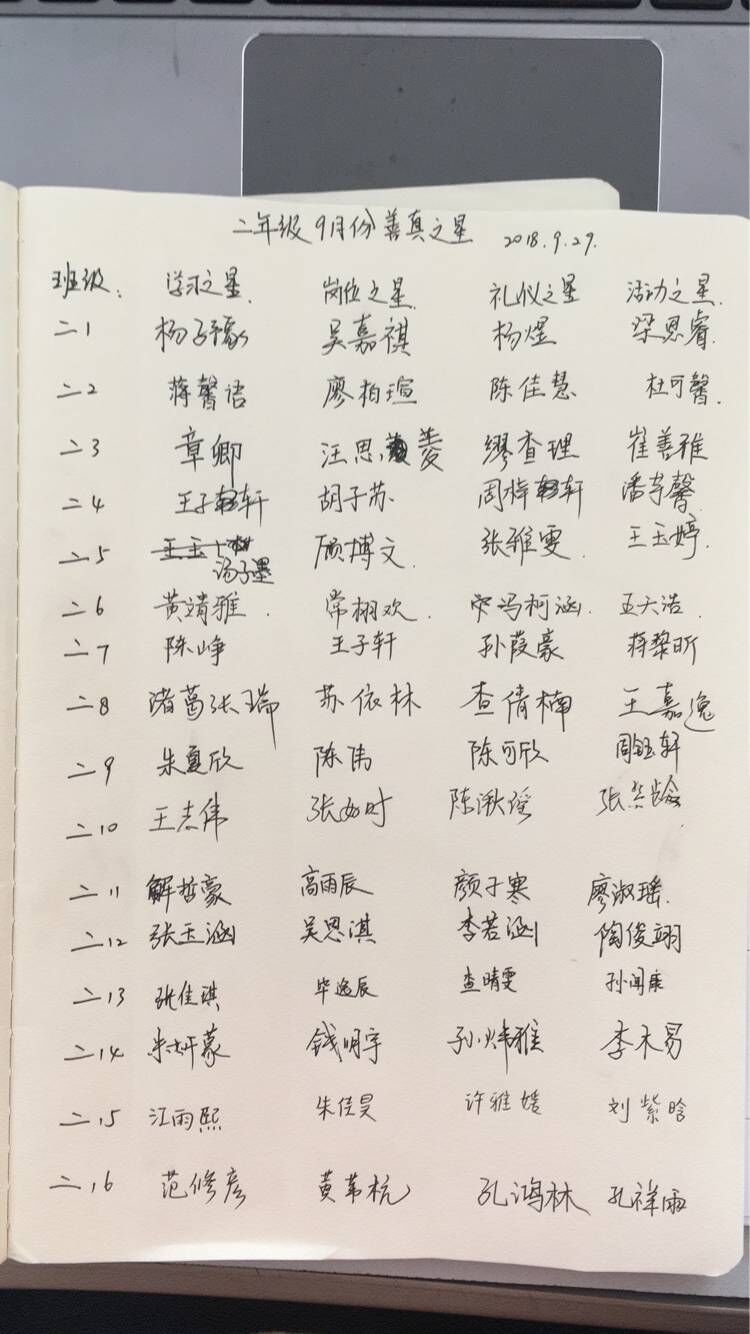 二年级9月份善真之星 2018.9.29.
班级: 学习之星. 岗位之星. 礼仪之星 活动之星.
二1 杨子豫 吴嘉祺 杨煜 梁恩睿.
二2 蒋馨语 廖柏瑄 陈佳慧 杜可馨.
二3 章卿 汪思菱 缪查理 崔善雅
二4 王子轩 胡子苏 周梓轩 潘芓馨
二5 汤子墨 顾博文 张雅雯 王玉婷.
二6 黄靖雅. 常栩欢. 宋冯柯涵. 王天浩.
二7 陈峥 王子轩 孙葭豪 蒋黎昕
二8 诸葛张瑞 苏依林 查倩楠 王嘉逸
二9 朱夏欣 陈伟 陈可欣 周钰轩
二10 王志伟 张如时 陈湫瑶 张龄
二11 解哲豪 高雨辰 颜子寒 廖淑瑶.
二12 张玉涵 吴思淇 李若涵 陶俊翊
二13 张佳琪 毕逸辰 查晴雯 孙闻康
二14 朱妍蒙 钱明宇 孙炜雅 李木易
二15 江雨熙 朱佳昊 许雅媛 刘紫晗
二16 范修彦 黄苇杭 孔鸿林 孔祥雨